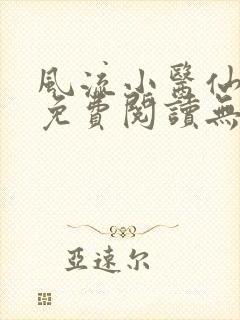 風流小醫仙
免費閱讀無
亞速尔